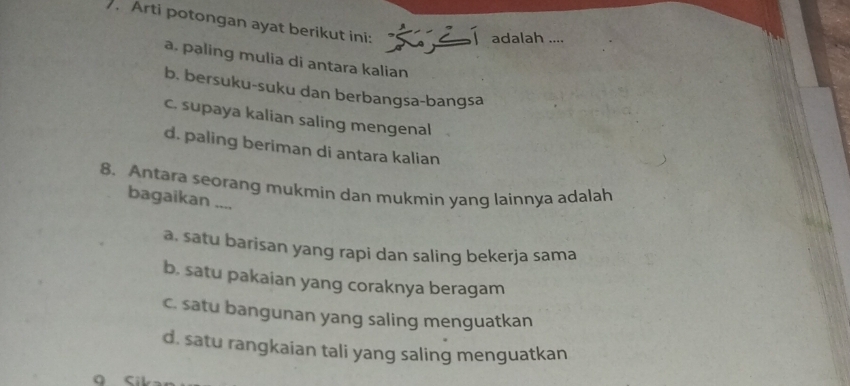 7. Arti potongan ayat berikut ini: أَكْرَمَكُمْ adalah ....
a. paling mulia di antara kalian
b. bersuku-suku dan berbangsa-bangsa
c. supaya kalian saling mengenal
d. paling beriman di antara kalian
8. Antara seorang mukmin dan mukmin yang lainnya adalah
bagaikan ....
a. satu barisan yang rapi dan saling bekerja sama
b. satu pakaian yang coraknya beragam
c. satu bangunan yang saling menguatkan
d. satu rangkaian tali yang saling menguatkan
9